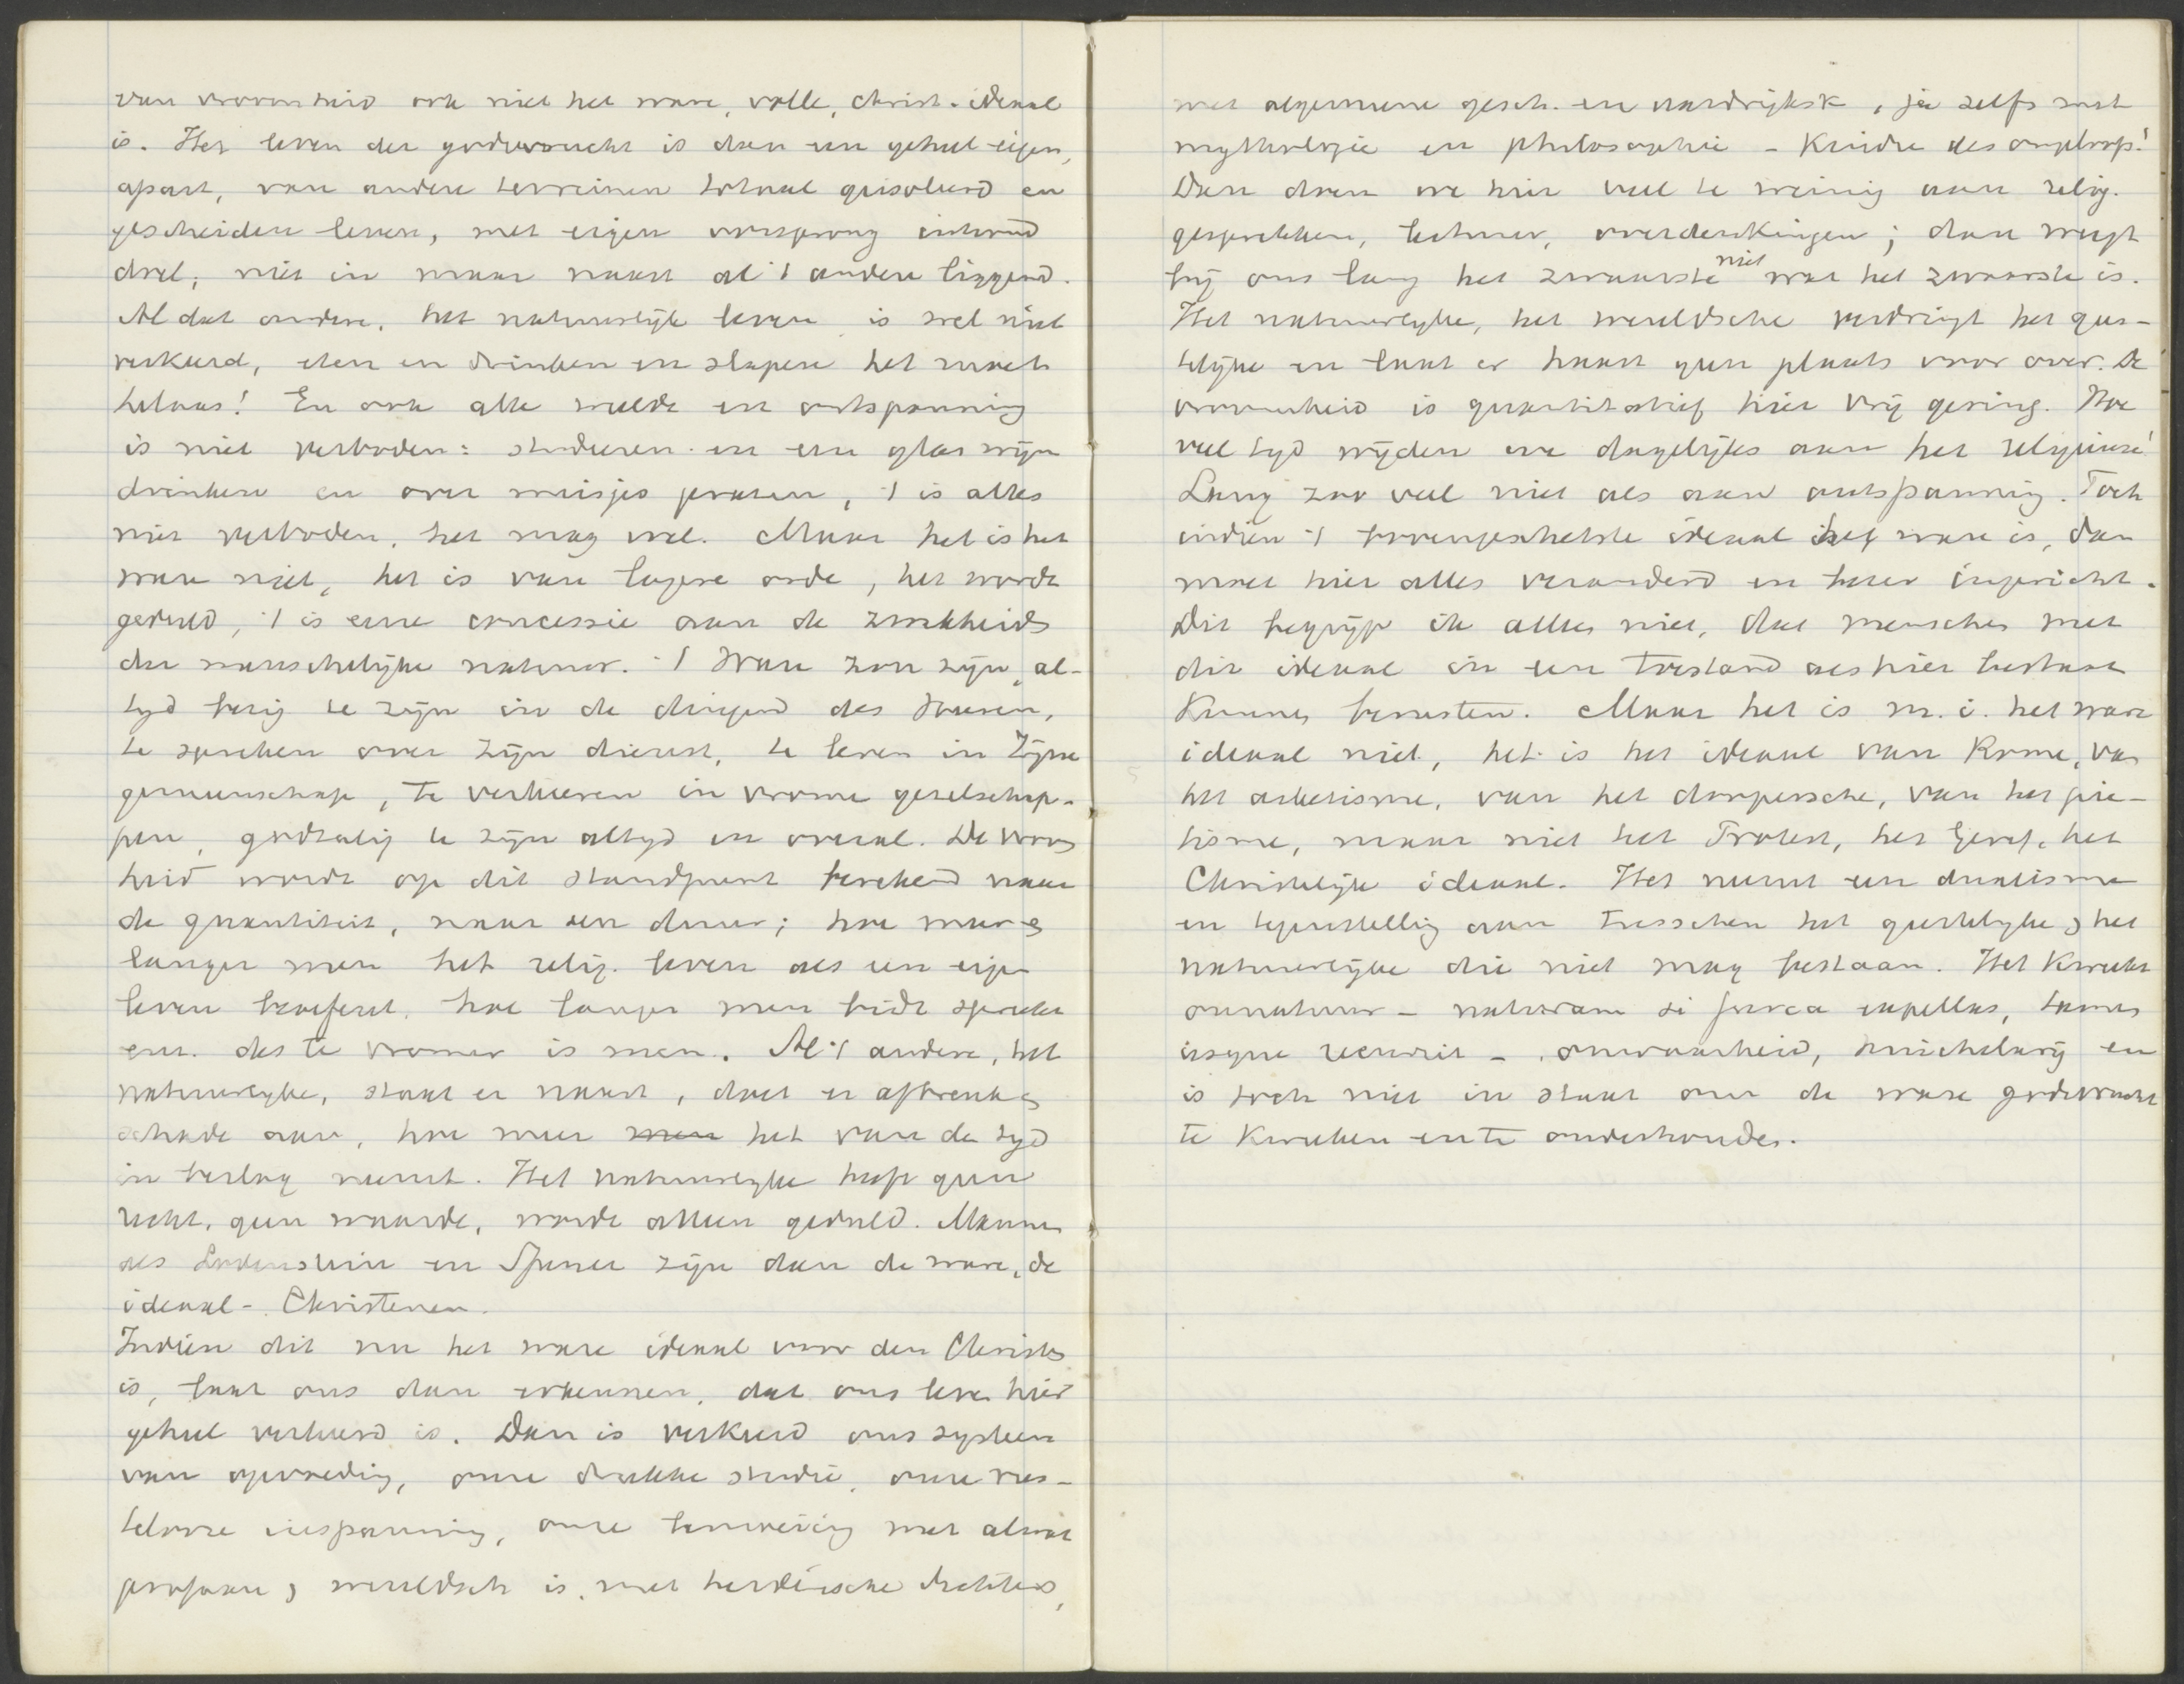 van vroomheid ook niet het ware, volle, Christ. ideaal
is. Het leven der godsvrucht is dan een geheel eigen,
apart, van andere terreinen totaal geisoleerd en
gescheiden leven, met eigen oorsprong inhoud
doel; niet in maar naast al 't andere liggend.
Al dat andere, het natuurlijk leven is wel niet
verkeerd, eten en drinken en slapen het moet
helaas! En ook alle weelde en ontspanning
is niet verboden: studeeren en een glas wijn
drinken en over meisjes praten, 't is alles
niet verboden, het mag wel. Maar het is het
ware niet, het is van lagere orde, het wordt
geduld, 't is eene concessie aan de zwakheid
der menschelijke natuur. 't Ware zou zijn, al-
tyd bezig te zijn in de dingen des Heeren,
te spreken over zijn dienst, te leven in Zijne
gemeenschap, te verkeeren in vrome gezelschap-
pen, godzalig te zijn altyd en overal. De vroom
heid wordt op dit standpunt berekend naar
de quantiteit, naar den duur; hoe meer en
langer men het relig. leven als een eigen
leven beoefent, hoe langer men bidt spreekt
enz. des te vromer is men. Al 't andere, het
natuurlyke, staat er naast, doet er afbreuk en
schade aan, hoe meer men het van de tyd
in beslag neemt. Het natuurlyke heeft geen
recht, geen waarde, wordt alleen geduld. Mannen
als Lodenstein en Spener zijn dan de ware, de
ideaal-Christenen.
Indien dit nu het ware ideaal voor den Christen
is, laat ons dan erkennen, dat ons leven hier
geheel verkeerd is. Dan is verkeerd ons systeem
van opvoeding, onze drukke studie, onze rus-
telooze inspanning, onze bemoeiing met alwat
profaan en wereldsch is, met heidensche dichters,
met algemeene gesch. en aardrijksk, ja zelfs met
mythologie en philosophie – Kinder des ongeloofs!
Dan doen we hier veel te weinig aan relig.
gesprekken, lectuur, overdenkingen; dan weegt
bij ons lang het zwaarste niet wat het zwaarste is.
Het natuurlyke, het wereldsche verdringt het gees-
telyke en laat er haast geen plaats voor over. De
vroomheid is quantitatief hier vrij gering. Hoe
veel tyd wijden we dagelijks aan het religieuse!
Lang zoo veel niet als aan ontspanning. Toch
indien 't bovengeschetste ideaal het ware is, dan
moet hier alles veranderd en beter ingericht.
Dit begrijp ik alles niet, dat menschen met
dit ideaal in een toestand als hier bestaat
Kunnen berusten. Maar het is m.i. het ware
ideaal niet, het is het ideaal van Rome, van
het ascetisme, van het doopersche, van het pie-
tisme, maar niet het Protest, het Geref, het
Christelijk ideaal. Het neemt een dualisme
en tegenstelling aan tusschen het geestelyke en het
natuurlijke die niet mag bestaan. Het Kweekt
onnatuur – naturam si furca expellas, tamen
usque recurrit – onwaarheid, huichelarij en
is toch niet in staat om de ware godsvrucht
te Kweeken en te onderhouden.